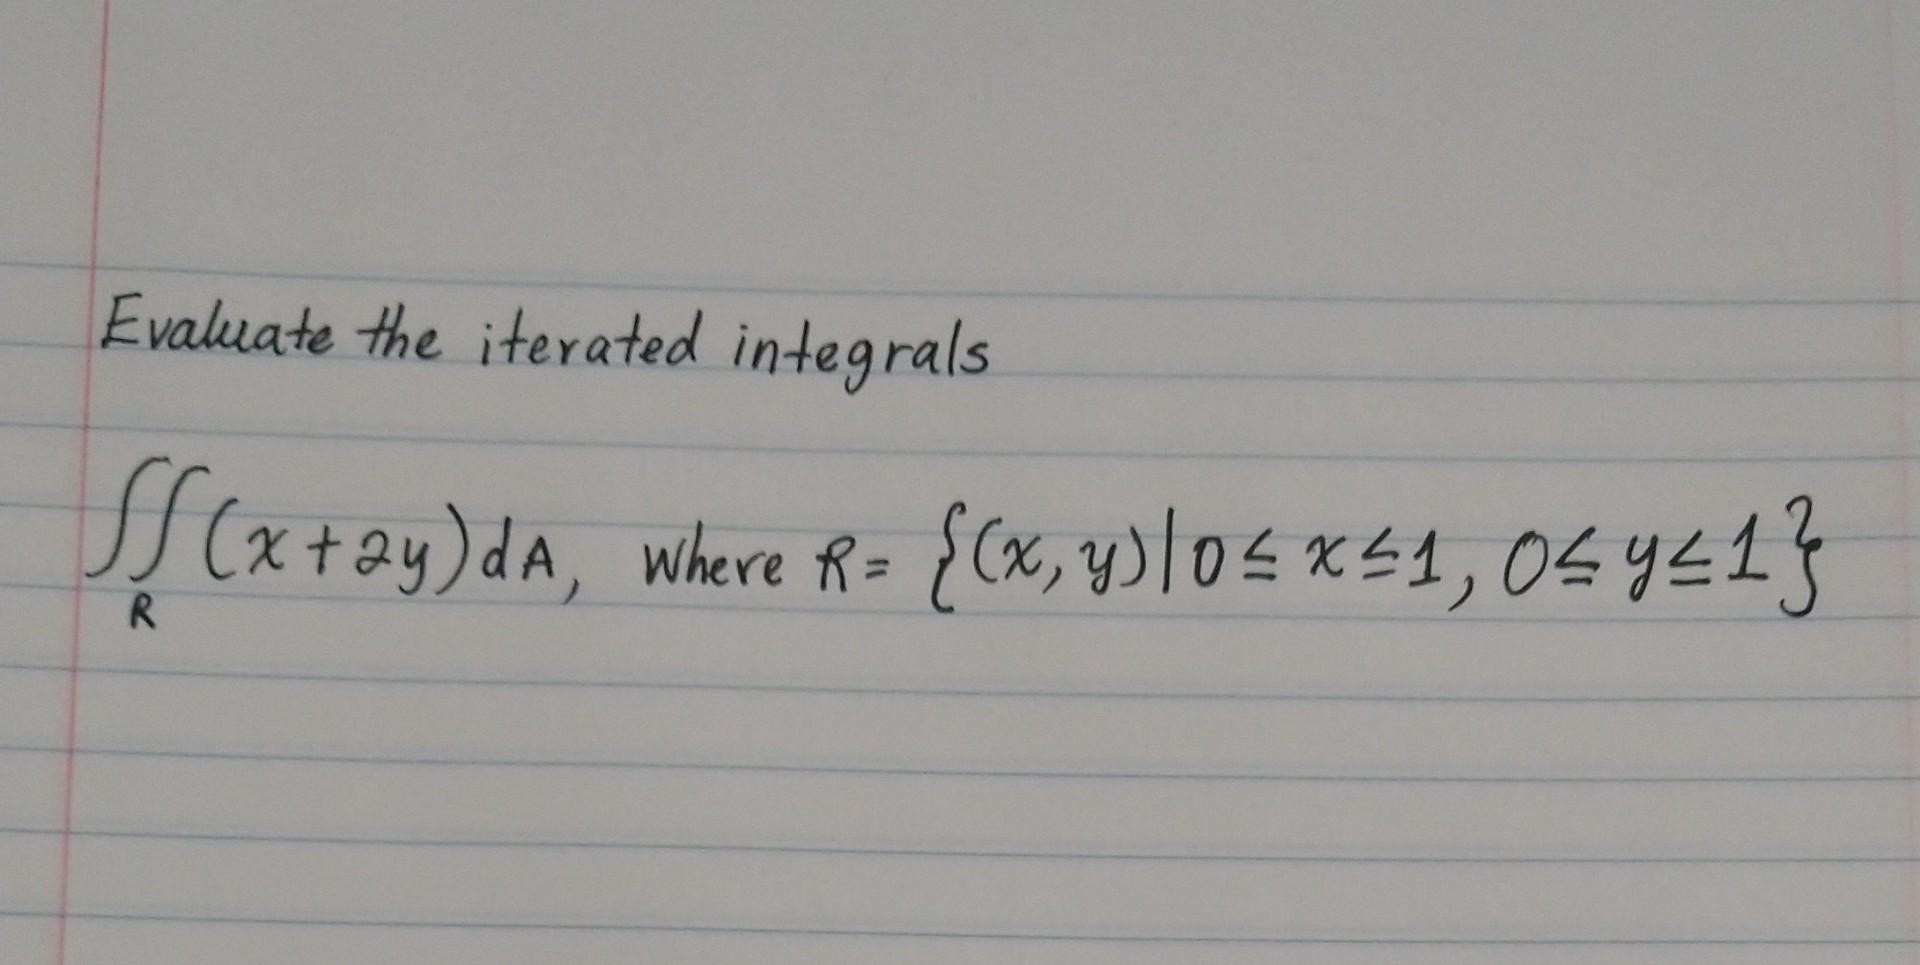 Evaluate the iterated integrals
∬(x+2y)dA, where R= {(x, y)|0≤ x≤1, 0≤ y≤1}
R